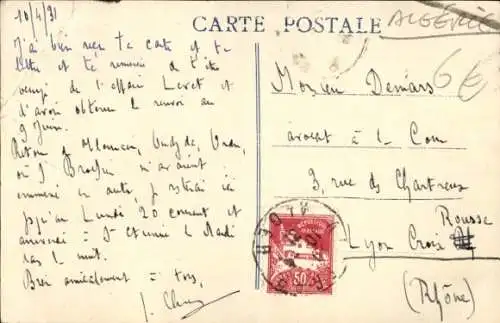 10/4/31
CARTE POSTALE
ALGÉRIE
6€
J'ai bien reçu ta carte et ta
lettre et te remercie de t'être
occupé de l'affaire Levet et
d'avoir obtenu le renvoi au
9 Juin.
Retour de Tlemcen, Oudjda,
où J m'avaient
emmené en auto, je resterai ici
jusqu'au Lundi 20 courant et
arriverai à St Etienne le Mardi
dans la nuit.
Bien amicalement à tous,
Monsieur Demars
avocat à la Cour
3, rue des Chartreux
Lyon Croix
Rousse
(Rhône)
ALGER
50